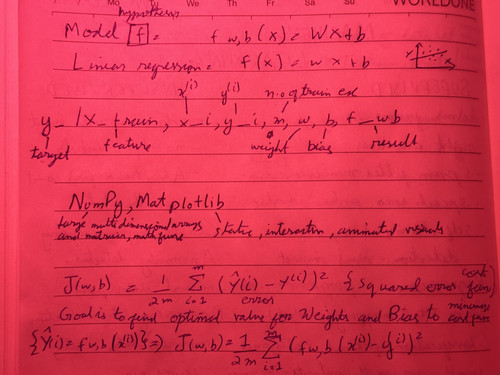 Mo We Th Fr Sa Su WORLDONE
hypothesis
Model [f] = f w,b (x) = Wx+b
Linear regression = f(x) = wx+b
x^(i) y^(i) no. of train ex
y_ / x_train, x_i, y_i, m, w, b, f_wb
target feature weight bias result
NumPy, Matplotlib
large multi dimensional arrays
and matrices, math func static, interactive, animated visuals
J(w,b) = 1/2m Σ_{i=1}^{m} (Ŷ(i) - y^(i))² {Squared error cost func}
error
Goal is to find optimal value for Weights and Bias to minimize cost func
{Ŷ(i) = f w,b (x^(i))} => J(w,b) = 1/2m Σ_{i=1}^{m} (f w,b (x^(i)) - y^(i))²